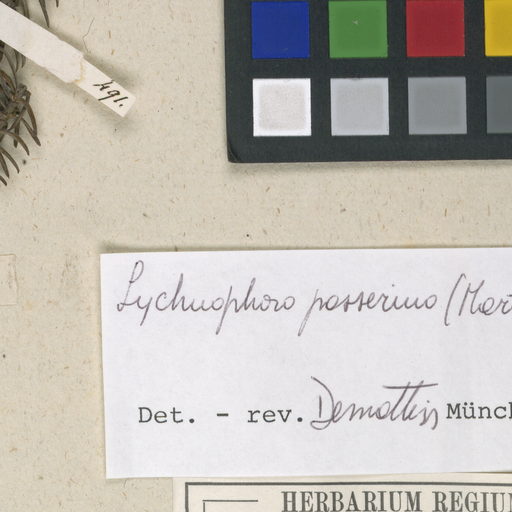 Lychnophora passerina (Mart
Det. - rev. Dematteis Münch
HERBARIUM REGIUM